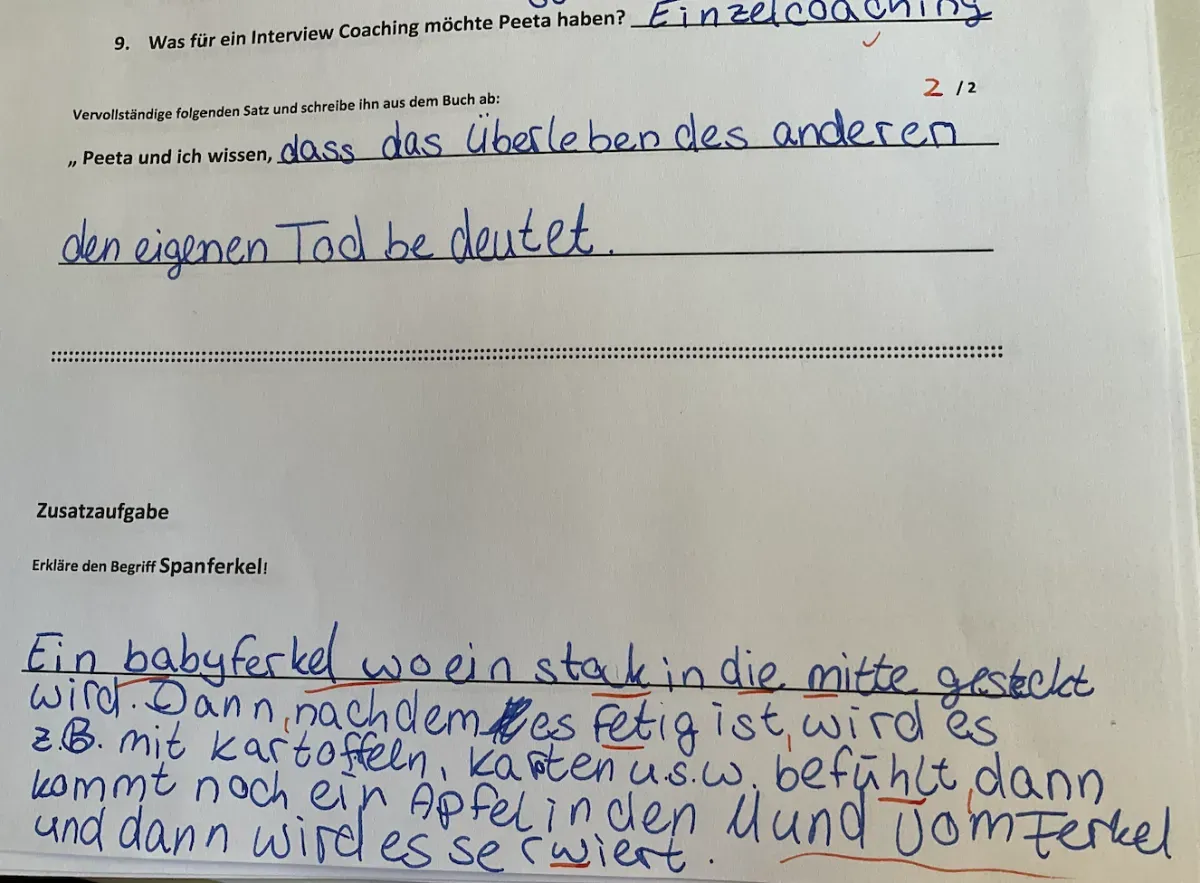 9. Was für ein Interview Coaching möchte Peeta haben? Einzelcoaching
2 /2
Vervollständige folgenden Satz und schreibe ihn aus dem Buch ab:
„ Peeta und ich wissen, dass das Überleben des anderen
den eigenen Tod bedeutet.
Zusatzaufgabe
Erkläre den Begriff Spanferkel!
Ein babyferkel wo ein stak in die mitte gesteckt
wird. Dann, nachdem es fetig ist, wird es
z.B. mit kartoffeln, karoten u.s.w. befühlt, dann
kommt noch ein Apfel in den Mund vom Ferkel
und dann wird es serwiert.